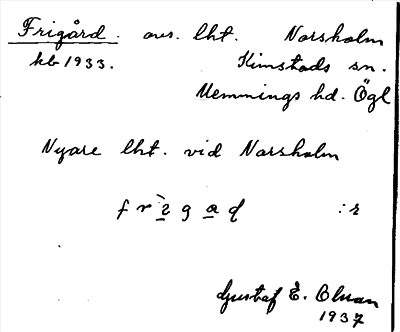 Frigård. avs. lht. Norsholm
kb 1933. Kimstads sn.
Memmings hd. Ögl
Nyare lht. vid Norsholm
:r
Gustaf E. Olsson
1937